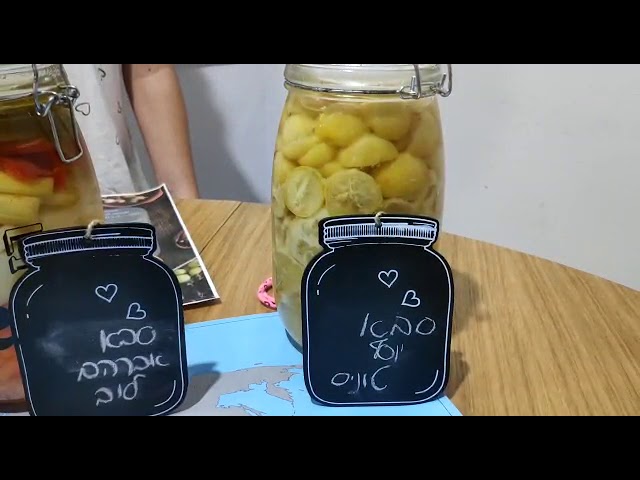 סבא
אברהם
לוב
סבא
יוסף
טוניס